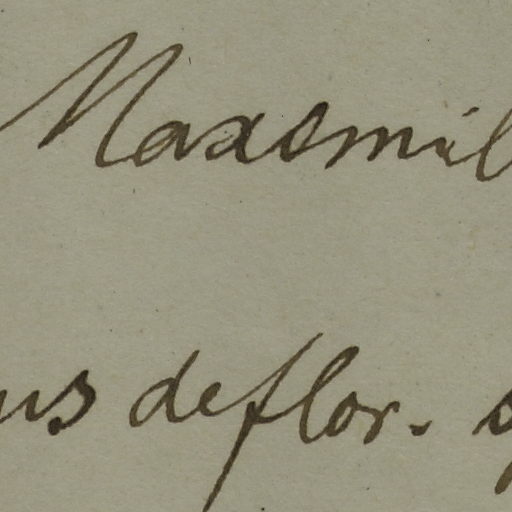 Maxemil
us deflor.